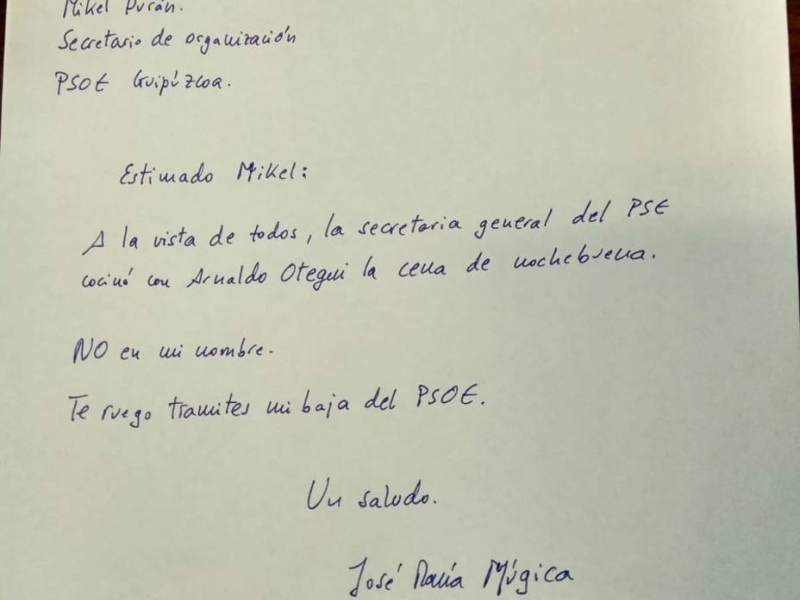 Mikel Durán.
Secretario de organización
PSOE Guipúzcoa.
Estimado Mikel:
A la vista de todos, la secretaria general del PSE
cocinó con Arnaldo Otegui la cena de nochebuena.
NO en mi nombre.
Te ruego tramites mi baja del PSOE.
Un saludo.
José María Múgica